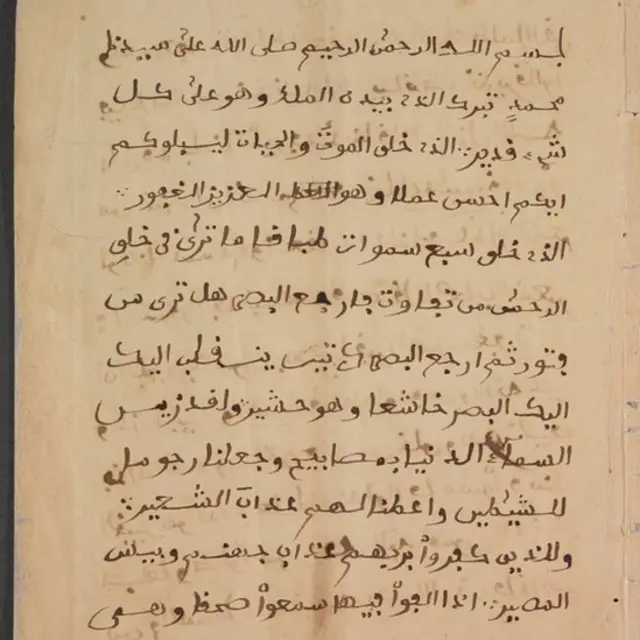 بسم الله الرحمن الرحيم صلى الله على سيدنا
محمد تبرك الذي بيده الملك وهو على كل
شيء قدير ∴ الذي خلق الموت والحيات ليبلوكم
ايكم احسن عملا وهو العزيز الغفور ∴
الذي خلق سبع سموات طباقا ما ترى في خلق
الرحمن من تفاوت فارجع البصر هل ترى من
فتور ثم ارجع البصر ينقلب اليك
اليك البصر خاشعا وهو حشير ولقد زين
السماء الدنيا بمصابيح وجعلنا رجوما
للشيطين واعطنا لهم عذاب الشعير ∴
وللذين كفروا بربهم عذاب جهنم وبيس
المصير ∴ اذا القوا فيها سمعوا